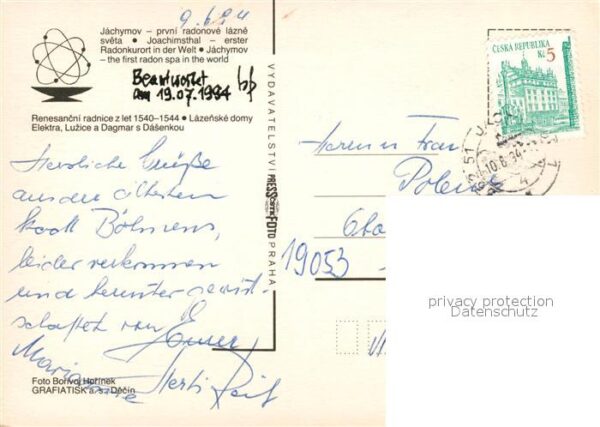 9.6.94
Jáchymov – první radonové lázně
světa • Joachimsthal – erster
Radonkurort in der Welt • Jáchymov
– the first radon spa in the world
Beantwortet
am 19.07.1994
Renesanční radnice z let 1540–1544 • Lázeňské domy
Elektra, Lužice a Dagmar s Dášenkou
Herzliche Grüße
aus der ältesten
Stadt Böhmens,
leider verkommen
und herunter gewirt-
schaftet von
Marianne
Foto Bořivoj Hořínek
GRAFIATISK a. s., Děčín
VYDAVATELSTVÍ PRESSFOTO PRAHA
ČESKÁ REPUBLIKA
Kč 5
10.6.94
Herrn u Frau
19053
privacy protection
Datenschutz